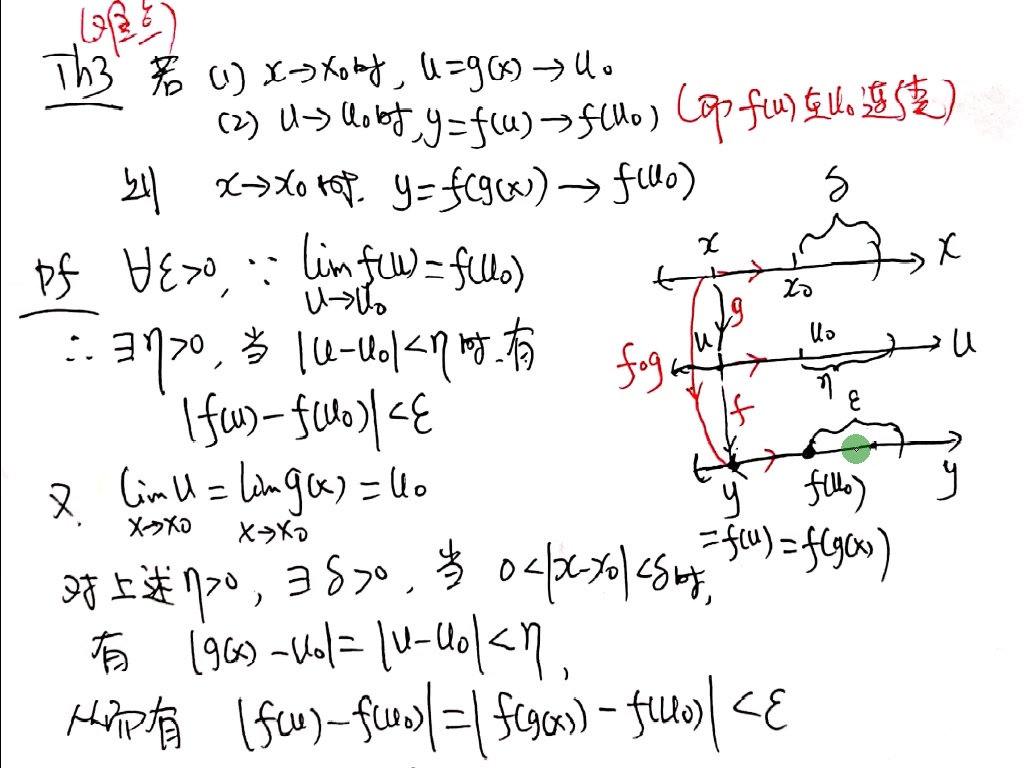 (难点)
Th3 若 (1) x→x₀时, u=g(x)→u₀
(2) u→u₀时, y=f(u)→f(u₀) (即f(u)在u₀连续)
则 x→x₀时. y=f(g(x))→f(u₀)
pf ∀ε>0, ∵ lim f(u)=f(u₀)
u→u₀
∴ ∃η>0, 当 |u-u₀|<η时. 有
|f(u)-f(u₀)|<ε
又. lim u = lim g(x) = u₀
x→x₀ x→x₀
对上述η>0, ∃δ>0, 当 0<|x-x₀|<δ时,
有 |g(x)-u₀|=|u-u₀|<η,
从而有 |f(u)-f(u₀)|=|f(g(x))-f(u₀)|<ε
δ
x x₀ X
g
u u₀ u
f∘g η
f ε
y f(u₀) y
=f(u)=f(g(x))